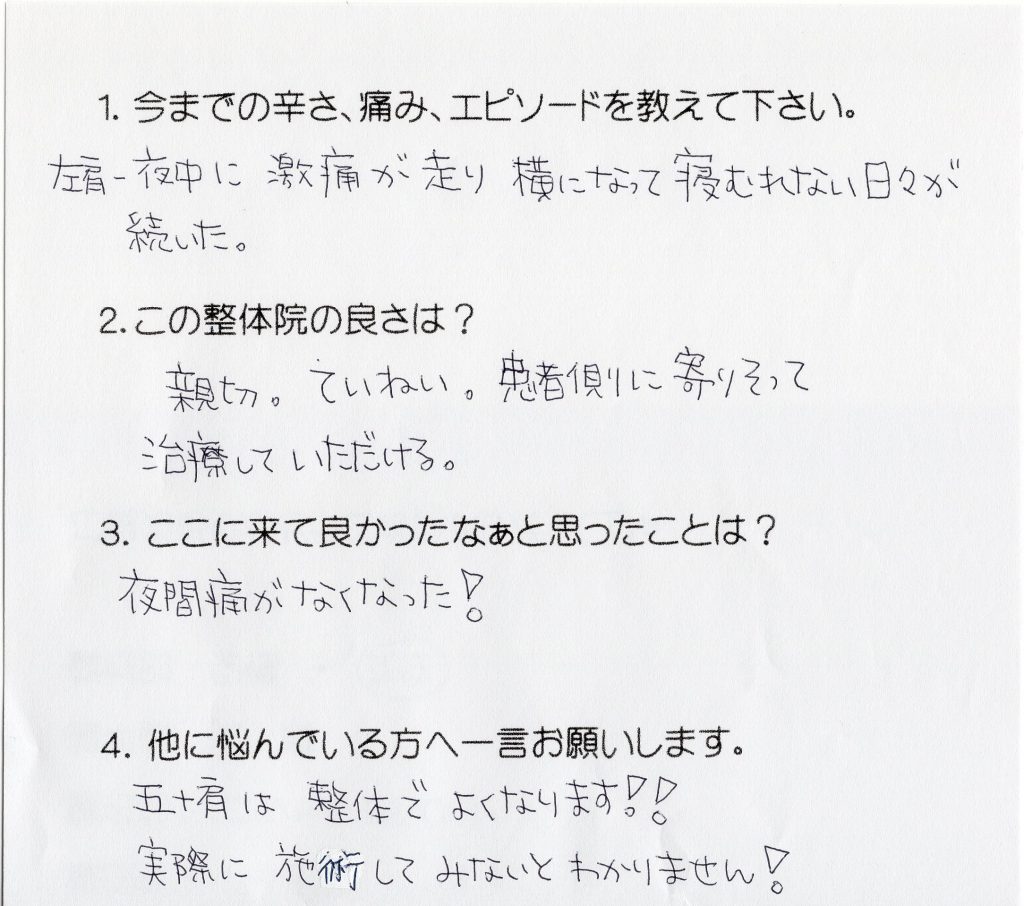 1. 今までの辛さ、痛み、エピソードを教えて下さい。
左肩-夜中に 激痛が走り 横になって寝むれない日々が
続いた。
2.この整体院の良さは？
親切。ていねい。患者側りに寄りそって
治療していただける。
3. ここに来て良かったなぁと思ったことは？
夜間痛がなくなった!
4. 他に悩んでいる方へ一言お願いします。
五十肩は 整体で よくなります!!
実際に 施術して みないと わかりません!